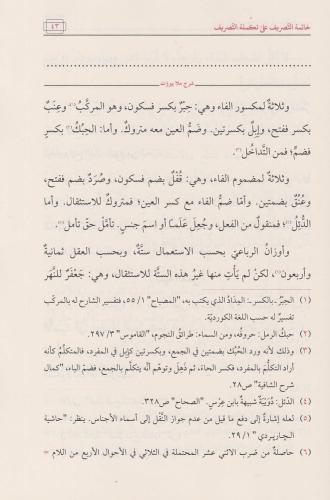 خاتمة التصريف على تكملة التصريف
٤٣
شرح ملا بيروت
وثلاثةٌ لمكسور الفاء وهي: حِبْرٌ بكسر فسكون، وهو المركّبُ(١) وعِنَبٌ
بكسر ففتح، وإِبِلٌ بكسرتين. وضمُّ العين معه متروكٌ. وأما: الحِبُكُ(٢) بكسر
فضمٍّ؛ فمن التَّداخُل(٣).
وثلاثةٌ لمضموم الفاء وهي: قُفْلٌ بضم فسكون، وصُرَدٌ بضم ففتح،
وعُنُقٌ بضمتين. وأمّا ضمُّ الفاء مع كسر العين؛ فمتروكٌ للاستثقال. وأما
الدُّئِل(٤)؛ فمنقولٌ من الفعل، وجُعِلَ عَلَمًا أو اسمَ جنسٍ. تأمَّلْ حقّ تأمل(٥).
وأوزانُ الرباعيّ بحسب الاستعمال ستَّةٌ، وبحسب العقل ثمانيةٌ
وأربعون(٦)، لكنْ لم يَأتِ منها غيرُ هذه الستَّة للاستثقال، وهي: جَعْفَرٌ للنَّهر
(١) الحِبْرُ ـ بالكسر ـ: المِدَادُ الذي يكتب به، "المصباح" ٥٥/١، فتفسير الشارح له بالمركّب
تفسيرٌ له حسب اللغة الكورديّة.
(٢) حبك الرمل: حروفُه، ومن السماء: طرائق النجوم، "القاموس" ٢٩٧/٣.
(٣) وذلك لأنه ورد الحُبُك بضمتين في الجمع، وبكسرتين كإبِل في المفرد، فالمتكلِّمُ كأنه
أراد التكلُّمَ بالمفرد، فكسر الحاءَ، ثم ذَهِلَ وتوهّم أنَّه يتكلّم بالجمع، فضمّ الباء، "كمال
شرح الشافية" ص٢٨.
(٤) الدُئل: دُوَيْبَةٌ شبيهةٌ بابن عِرْسٍ. "الصحاح" ص٣٢٨.
(٥) لعله إشارةٌ إلى دفع ما قيل من عدم جواز النَّقْل إلى أسماء الأجناس. ينظر: "حاشية
الجاربردي" ٢٩/١.
(٦) حاصلةٌ من ضرب الاثني عشر المحتملة في الثلاثي في الأحوال الأربع من اللام